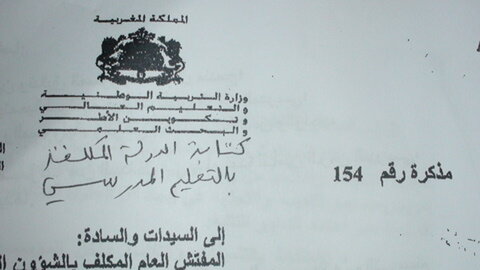 المملكة المغربية
وزارة التربية الوطنية
والتعليم العالي
وتكوين الأطر
والبحث العلمي
كتابة الدولة المكلفة
بالتعليم المدرسي
مذكرة رقم 154
إلى السيدات والسادة:
المفتش العام المكلف بالشؤون